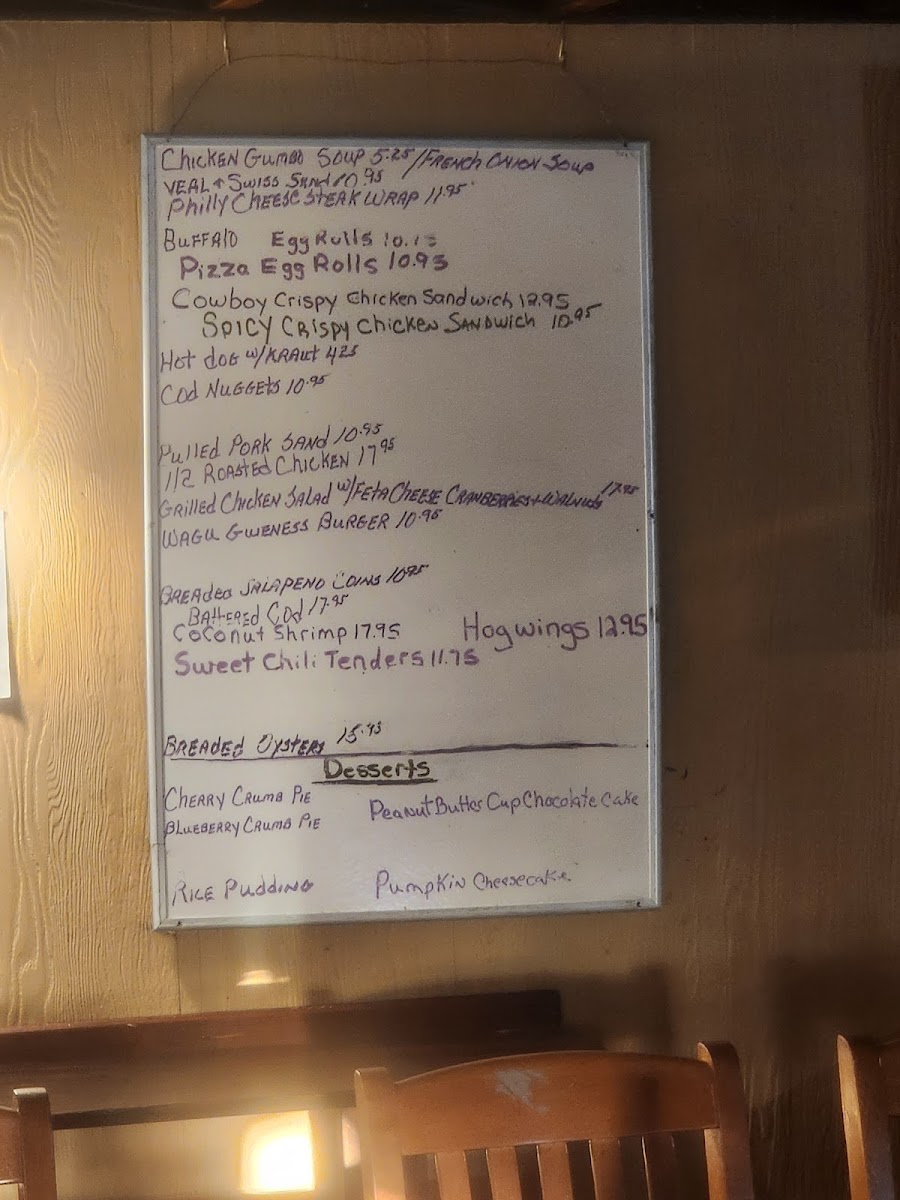 Chicken Gumbo Soup 5.25/French Onion Soup
Veal + Swiss Sand 10.95
Philly Cheese Steak Wrap 11.95
Buffalo Egg Rolls
Pizza Egg Rolls 10.95
Cowboy Crispy Chicken Sandwich 12.95
Spicy Crispy Chicken Sandwich 10.95
Hot dog w/Kraut 4.25
Cod Nuggets 10.95
Pulled Pork Sand 10.95
1/2 Roasted Chicken 17.95
Grilled Chicken Salad w/Feta Cheese Cranberries + Walnuts 17.95
Wagu Gweness Burger 10.95
Breaded Jalapeno Coins 10.95
Battered Cod 17.95
Coconut Shrimp 17.95 Hogwings 12.95
Sweet Chili Tenders 11.75
Breaded Oysters 15.95
Desserts
Cherry Crumb Pie
Peanut Butter Cup Chocolate Cake
Blueberry Crumb Pie
Rice Pudding Pumpkin Cheesecake